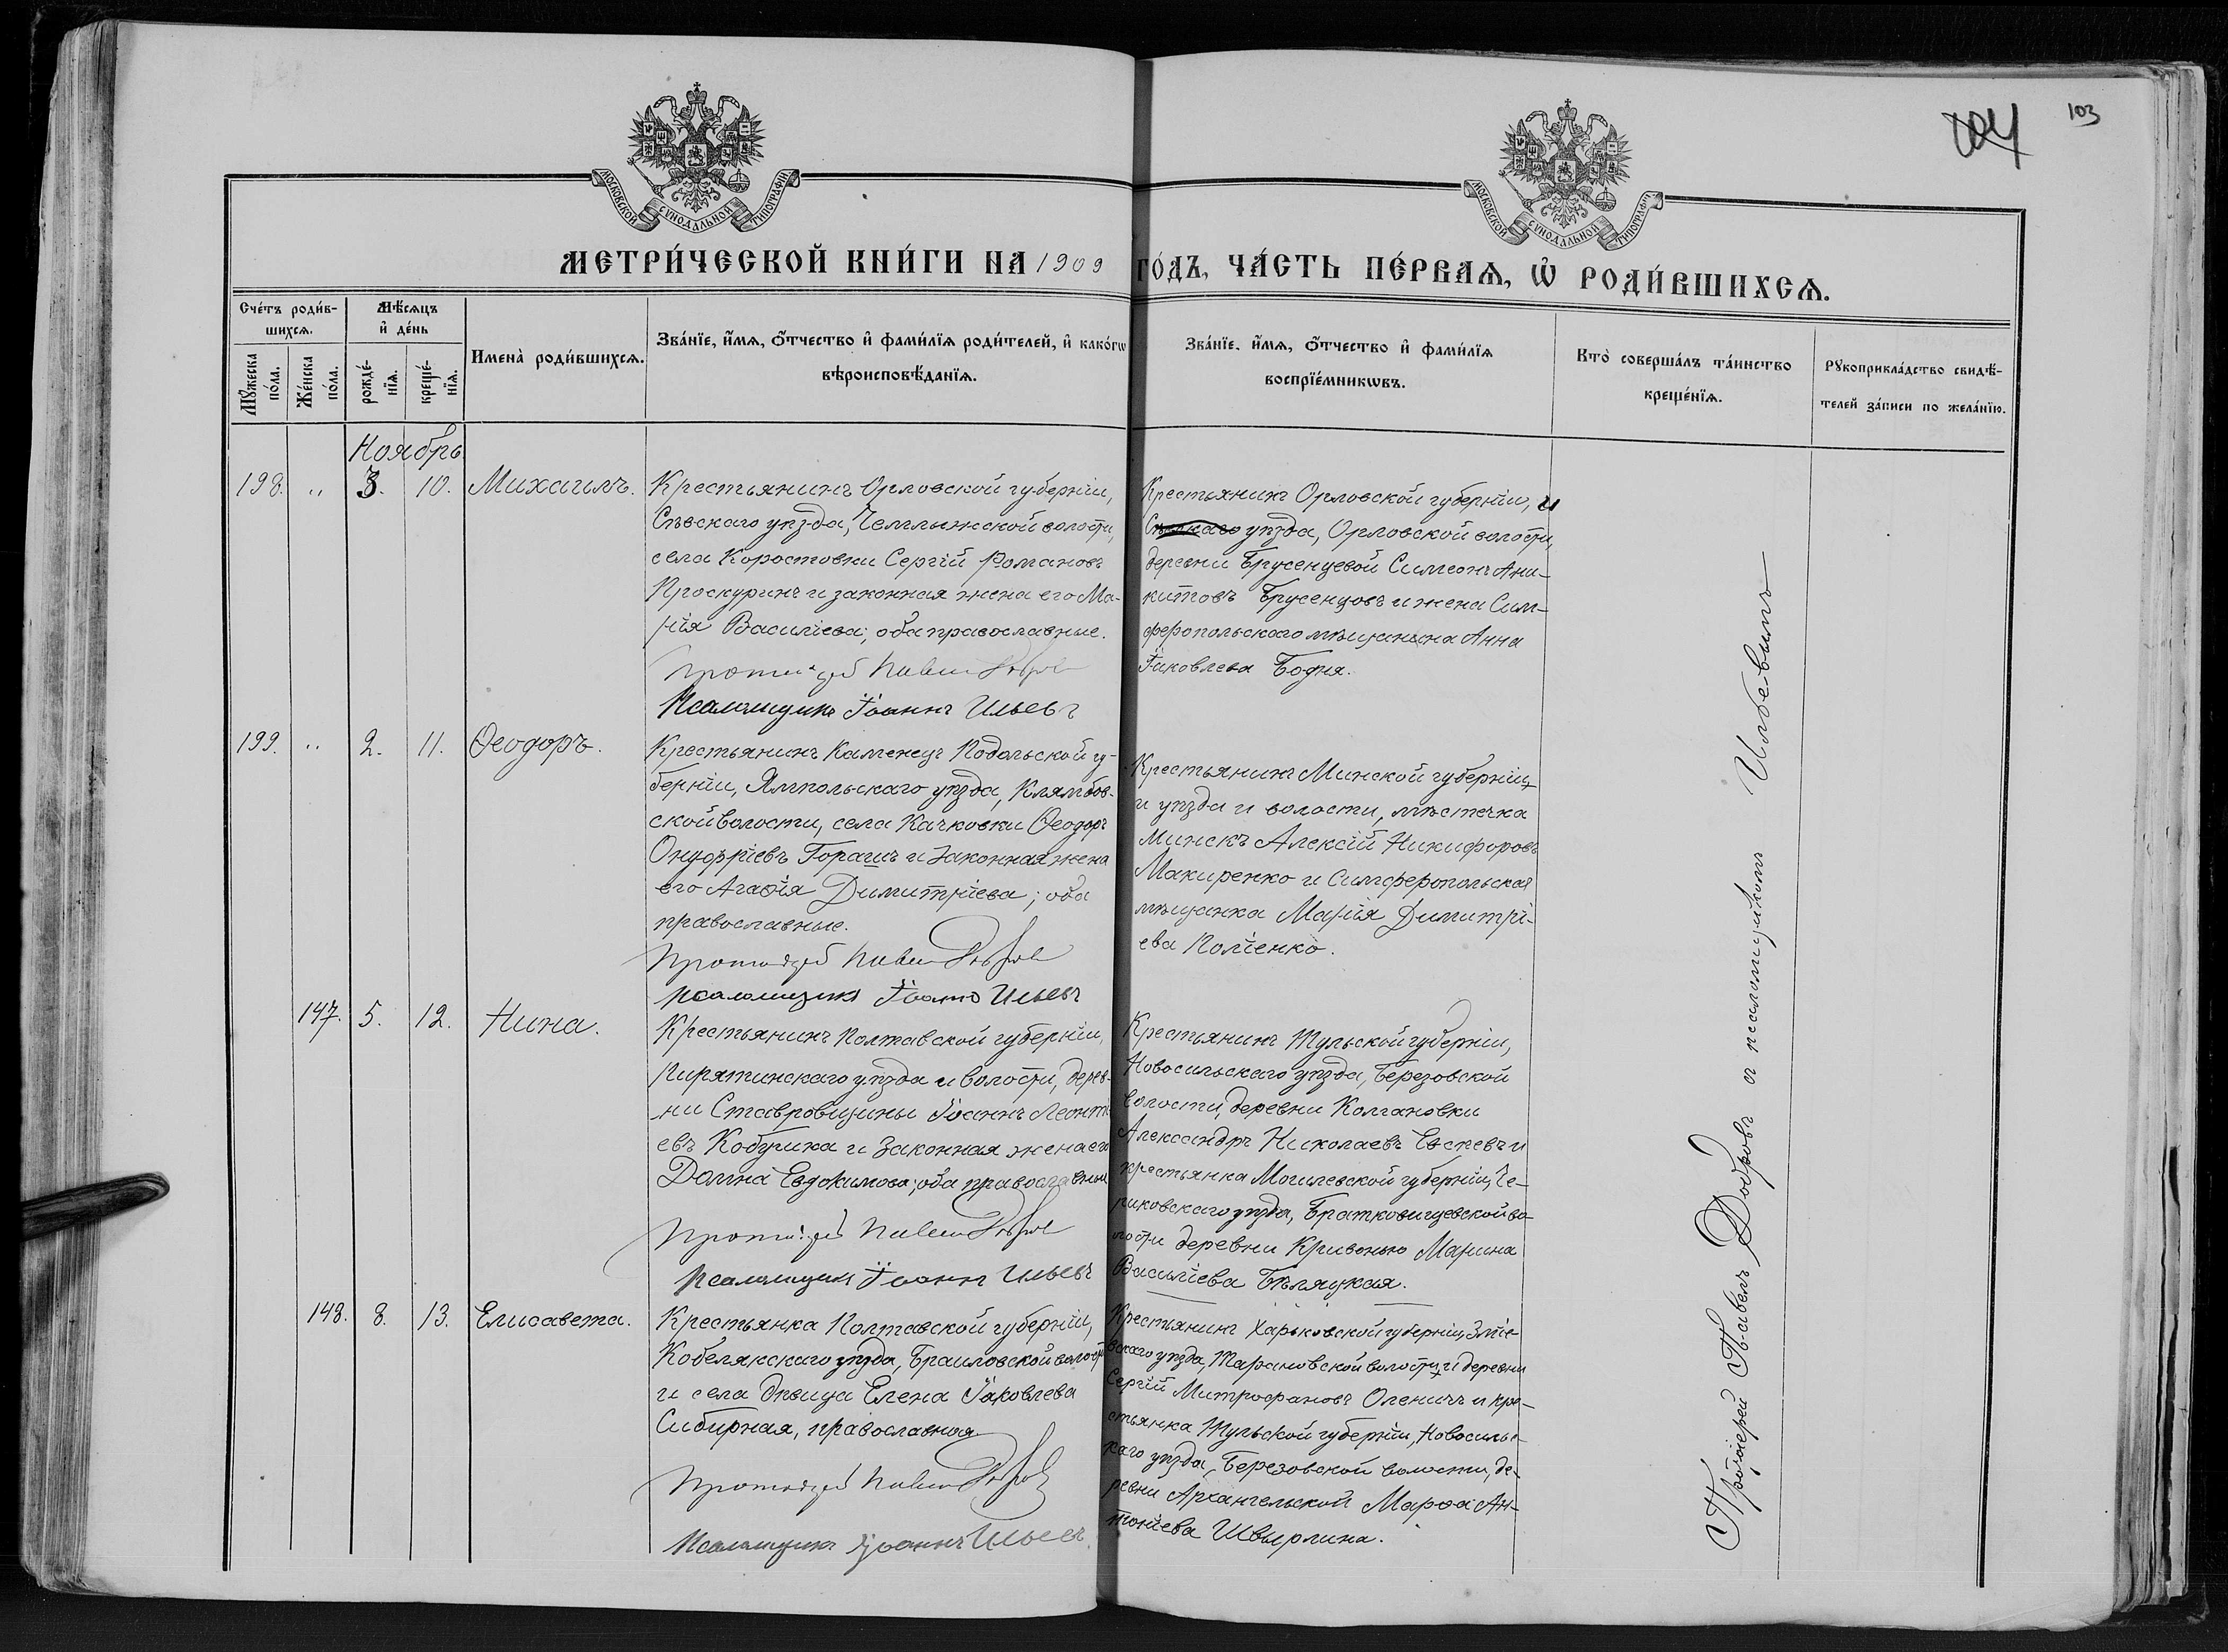 104 103
МОСКОВСКОЙ СѴНОДАЛЬНОЙ ТИПОГРАФІИ
МОСКОВСКОЙ СѴНОДАЛЬНОЙ ТИПОГРАФІИ
МЕТРИ́ЧЕСКОЙ КНИ́ГИ НА 1909 ГО́ДЪ, ЧА́СТЬ ПЕ́РВАѦ, Ѡ҆ РОДИ́ВШИХСѦ.
Сче́тъ роди́в-
шихсѧ.
Мꙋ́жеска по́ла.
Же́нска по́ла.
Мѣ́сѧцъ
и҆ де́нь
рожде́-
нїѧ.
креще́-
нїѧ.
Имена̀ роди́вшихсѧ.
Зва́нїе, и҆́мѧ, ѻ҆́тчество и҆ фами́лїѧ роди́телей, и҆ како́гѡ
вѣроисповѣ́данїѧ.
Зва́нїе, и҆́мѧ, ѻ҆́тчество и҆ фами́лїѧ
воспрїе́мникѡвъ.
Кто̀ соверша́лъ та́инство
креще́нїѧ.
Рꙋкоприкла́дство свидѣ́-
телей за́писи по жела́нїю.
Ноябрь
198. „ 3. 10. Михаилъ.
Крестьянинъ Орловской губерніи,
Сѣвскаго уѣзда, Чемлыжской волости,
села Коростовки Сергій Романовъ
Проскуринъ и законная жена его Ма-
рія Василіева; оба православные.
Протоіерей Павелъ Добровъ
Псаломщикъ Іоаннъ Ильевъ
Крестьянинъ Орловской губерніи, и
уѣзда, Орловской волости,
деревни Брусенцевой Симеонъ Ани-
китовъ Брусенцовъ и жена Сим-
феропольскаго мѣщанина Анна
Іаковлева Бодня.
199. „ 2. 11. Ѳеодоръ.
Крестьянинъ Каменецъ Подольской гу-
берніи, Ямпольскаго уѣзда, Клямбов-
ской волости, села Качковки Ѳеодоръ
Онуфріевъ Горашъ и законная жена
его Агаѳія Димитріева; оба
православные.
Протоіерей Павелъ Добровъ
Псаломщикъ Іоаннъ Ильевъ
Крестьянинъ Минской губерніи,
и уѣзда и волости, мѣстечка
Минскъ Алексій Никифоровъ
Макиренко и Симферопольская
мѣщанка Марія Димитрі-
ева Поліенко.
147. 5. 12. Нина.
Крестьянинъ Полтавской губерніи,
Пирятинскаго уѣзда и волости, дерев-
ни Ставровщины Іоаннъ Леонті-
евъ Кобушка и законная жена его
Домна Евдокимова; оба православные
Протоіерей Павелъ Добровъ
Псаломщикъ Іоаннъ Ильевъ
Крестьянинъ Тульской губерніи,
Новосильскаго уѣзда, Березовской
волости, деревни Колгановки
Александръ Николаевъ и
крестьянка Могилевской губерніи, Че-
риковскаго уѣзда, Братковищевской во-
лости деревни Кривонью Марина
Василіева Бѣляцкая.
148. 8. 13. Елисавета.
Крестьянка Полтавской губерніи,
Кобелякскаго уѣзда, Браиловской волости
и села дѣвица Елена Іаковлева
Сибирная, православная
Протоіерей Павелъ Добровъ
Псаломщикъ Іоаннъ Ильевъ.
Крестьянинъ Харьковской губерніи, Зміе-
вскаго уѣзда, Тарановской волости, и деревни
Сергій Митрофановъ Оленичъ и кре-
стьянка Тульской губерніи, Новосильс-
каго уѣзда, Березовской волости, де-
ревни Архангельской Марѳа Ан-
тоніева Швырлина.
Протоіерей Павелъ Добровъ съ псаломщикомъ Ильевымъ